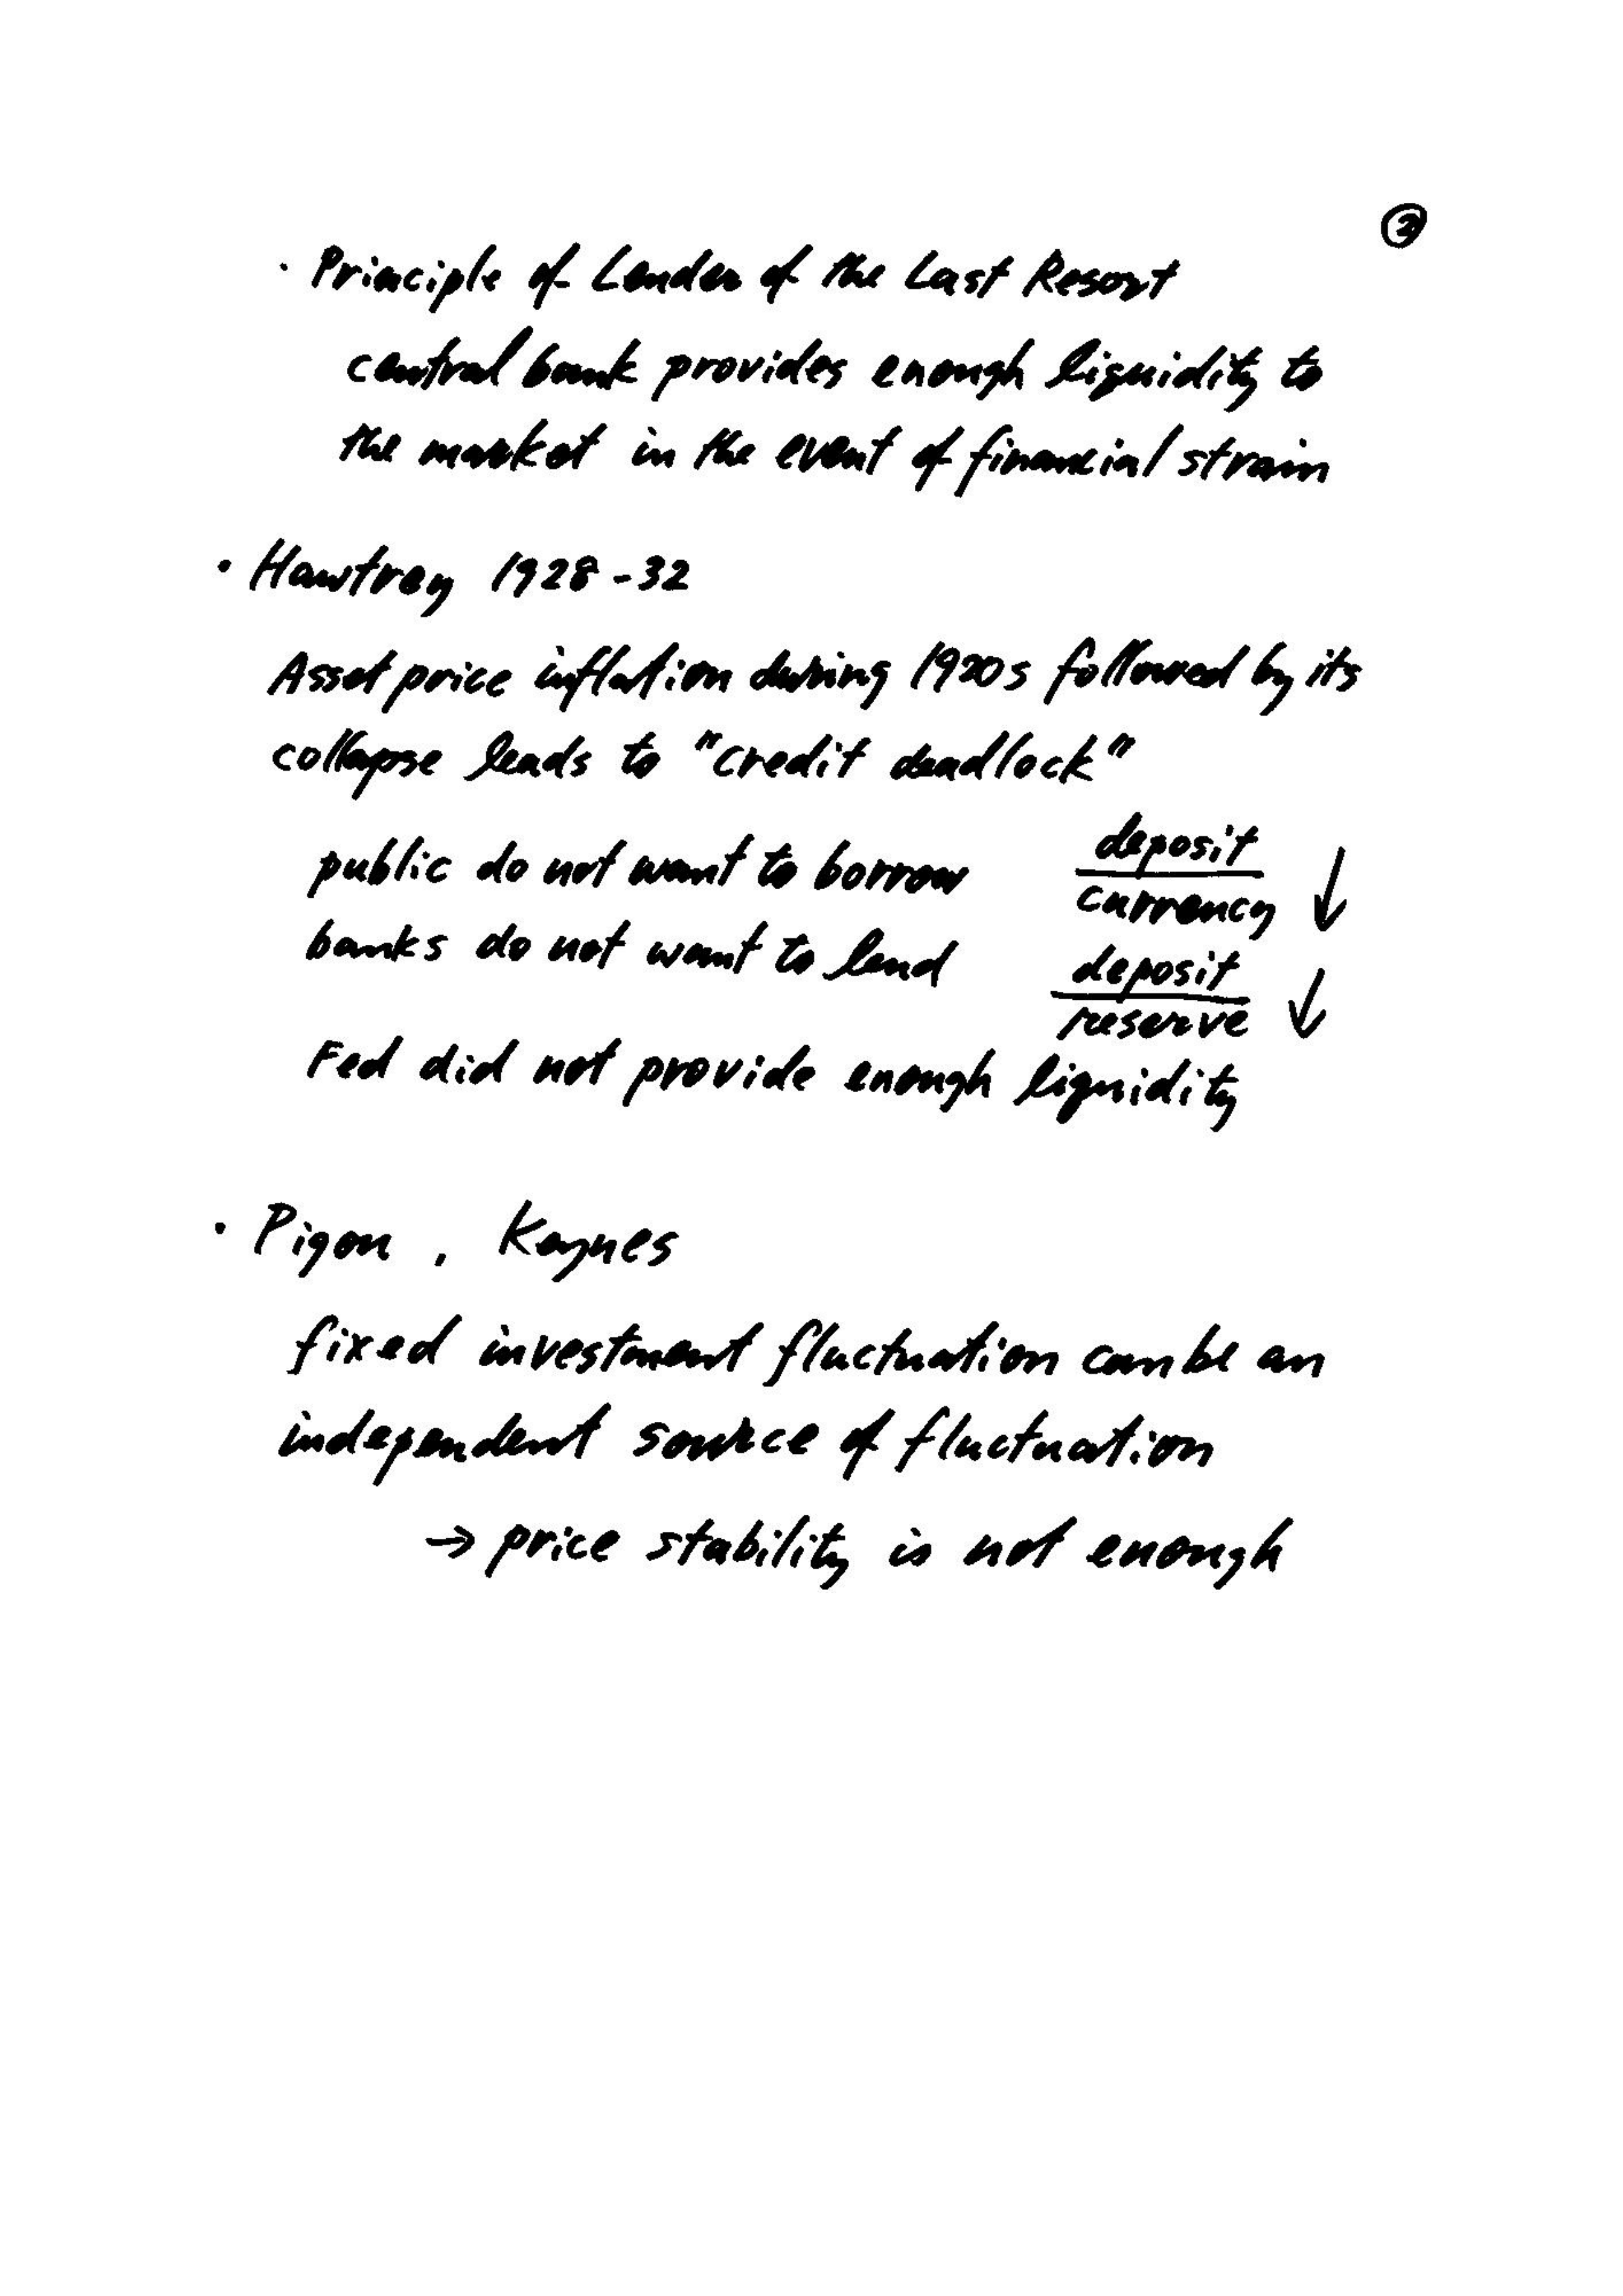 ②
· Principle of Lender of the Last Resort
central bank provides enough liquidity to
the market in the event of financial strain
· Hawtrey 1928-32
Asset price inflation during 1920s followed by its
collapse leads to "credit deadlock"
public do not want to borrow deposit/currency ↓
banks do not want to lend deposit/reserve ↓
Fed did not provide enough liquidity
· Pigou, Keynes
fixed investment fluctuation can be an
independent source of fluctuation
→ price stability is not enough